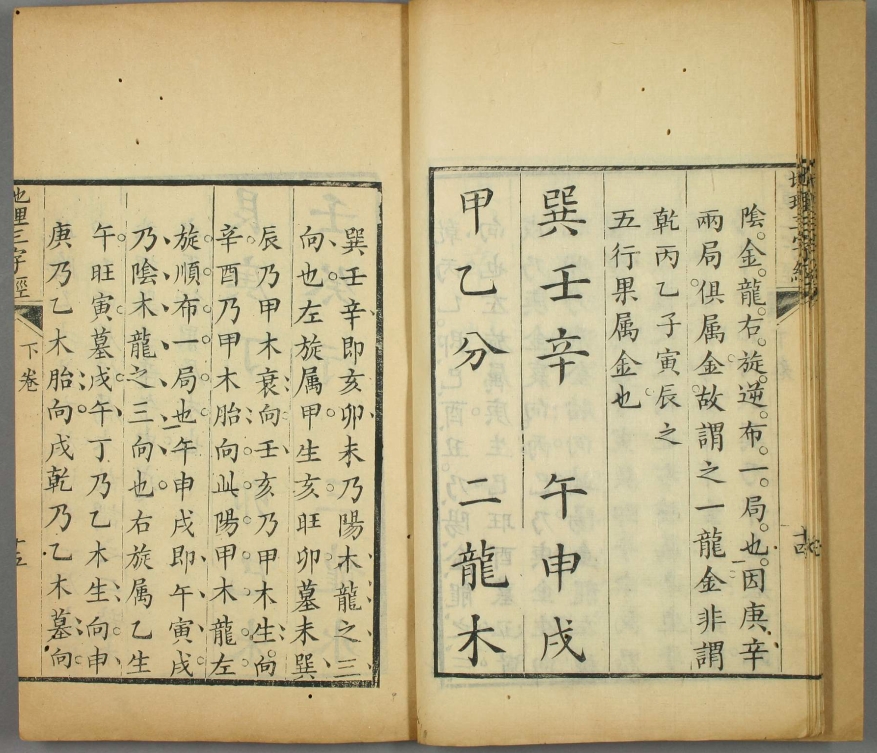 陰金龍右旋逆布一局也因庚辛
兩局俱属金故謂之一龍金非謂
乾丙乙子寅辰之
五行果属金也
巽壬辛 午申戌
甲乙分 二龍木
地理三字經
巽壬辛即亥卯未乃陽木龍之三
向也左旋属甲生亥旺卯墓未巽
辰乃甲木衰向壬亥乃甲木生向
辛酉乃甲木胎向此陽甲木龍左
旋順布一局也午申戌即午寅戌
乃陰木龍之三向也右旋属乙生
午旺寅墓戌午丁乃乙木生向申
庚乃乙木胎向戌乾乃乙木墓向
地理三字經
下卷
十五